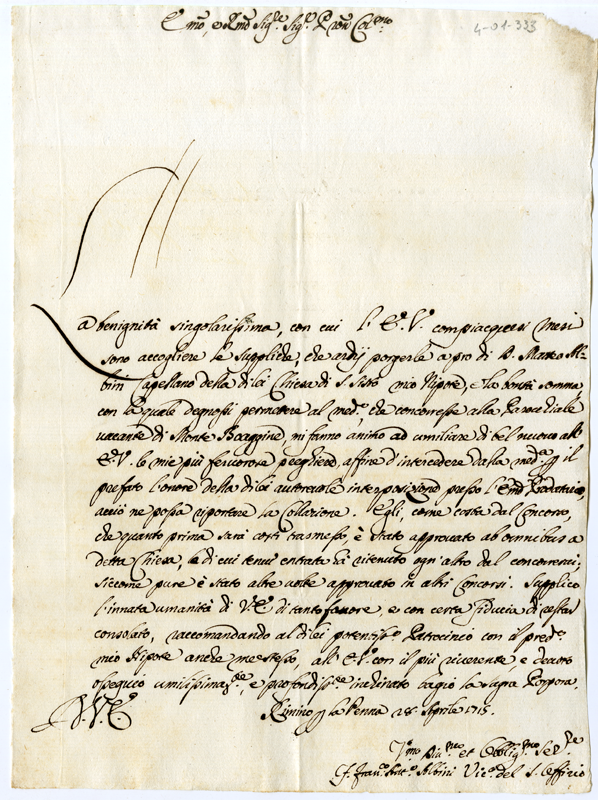 Emo, e Rmo Sigre Sigr Pron Colmo
4-01-333
La benignità singolarissima, con cui l'E.V. compiacquesi mesi
sono accogliere le suppliche, che ardij porgerle a pro di D. Matteo Al-
bini Capellano della di lei Chiesa di S. Sisto mio Nipote, e la bontà somma,
con la quale degnossi permettere al medo, che concorresse alla Parochiale
vacante di Monte Boaggine, mi fanno animo ad umiliare di bel nuovo all'
E.V. le mie più fervorose preghiere affine d'intercedere dalla meda il
prefato l'onore della di lei autorevole interposizione presso l'Emo Prodatario,
acciò ne possa riportare la Collazione. Egli, come costa dal Concorso,
che quanto prima sarà costì trasmesso, è stato approvato ab omnibus a
detta Chiesa, le di cui tenui entrate hà ritenuto ogn'altro dal concorrervi,
siccome pure è stato altre volte approvato in altri Concorsi. Supplico
l'innata umanità di V.E. di tanto favore, e con certa fiducia di restar
consolato, raccomando al di lei potentissmo Patrocinio con il predo
mio Nipote anche me stesso, all'E.V. con il più riverente e devoto
ossequio umilissimate, e profondissте inchinato bagio la Sagra Porpora.
D.V.E. Rimino la Penna 28. Aprile 1715.
Vmo Divmo et Obbligmo Serre
F. Franco Anto Albini Vico del S. Officio